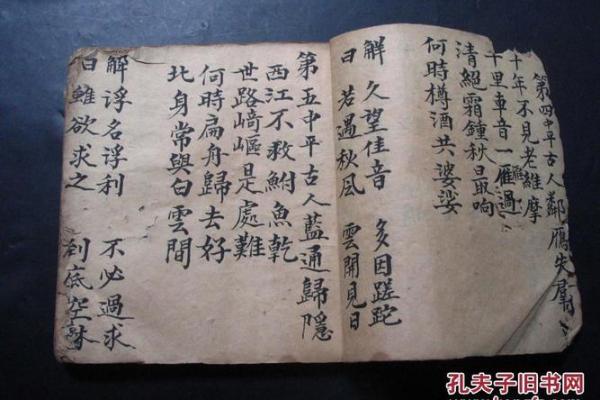 第四中平古人鄰雁失羣
十年不見老維摩
千里車音一雁過
清絕霜鍾秋最响
何時樽酒共婆娑
解 久望佳音 多因蹉跎
曰 若遇秋风 雲開見日
第五中平古人藍通歸隱
西江不救鮒魚乾
世路崎嶇是處難
何時扁舟歸去好
北身常與白雲間
解 浮名浮利 不必過求
曰 雖欲求之 到底空
孔夫子旧书网